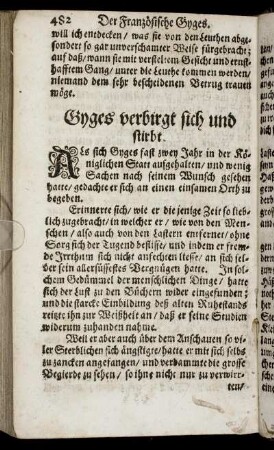 482 Der Französische Gyges.
will ich entdecken/ was sie von den Leuthen abge-
sondert so gar unverschamter Weise fürgebracht;
auf daß/ wann sie mit verstelltem Gesicht und ernst-
hafftem Gang/ unter die Leuthe kommen werden/
niemand dem sehr bescheidenen Betrug trauen
möge.
Gyges verbirgt sich und
stirbt.
ALs sich Gyges fast zwey Jahr in der Kö-
niglichen Statt aufgehalten/ und wenig
Sachen nach seinem Wunsch gesehen
hatte/ gedachte er sich an einen einsamen Orth zu
begeben.
Erinnerte sich/ wie er die jenige Zeit so lieb-
lich zugebracht/ in welcher er/ wie von den Men-
schen/ also auch von den Lastern entfernet/ ohne
Sorg sich der Tugend beflisse/ und indem er frem-
de Irrthum sich nicht anfechten liesse/ an sich sel-
ber sein allersüssestes Vergnügen hatte. In sol-
chem Gedümmel der menschlichen Dinge/ hatte
sich der Lust zu den Büchern wider eingefunden;
und die starcke Einbildung deß alten Ruhestands
reizte ihn zur Weißheit an/ daß er seine Studien
widerum zuhanden nahme.
Weil er aber auch über dem Anschauen so vi-
ler Sterblichen sich ängstigte/ hatte er mit sich selbs
zu zancken angefangen/ und verdammte die grosse
Begierde zu sehen/ so ihne nicht nur zu verwirr-
ten/